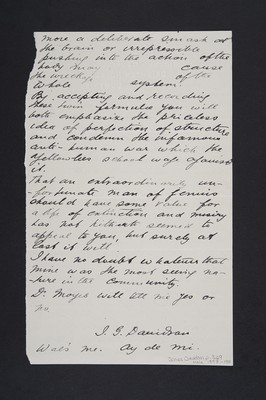 more a deliberate smash at
the brain or irrepressible
pushing into the action of the
body may cause
the wreckage of the
whole system.
By accepting and recording
these twin formulas you will
both emphasize the priceless
idea of perfection of structure
and condemn the infamous
anti-human war which the
Yellowlees school wage against
it.
That an extraordinarily un-
fortunate man of genius
should have some value for
a life of extinction and misery
has not hitherto seemed to
appeal to you, but surely at
last it will.
I have no doubt whatever that
mine was the most seeing na-
ture in the Community.
Dr Moyes will tell me yes or
no.
J. G. Davidson
Wae's me. Ay de mi.